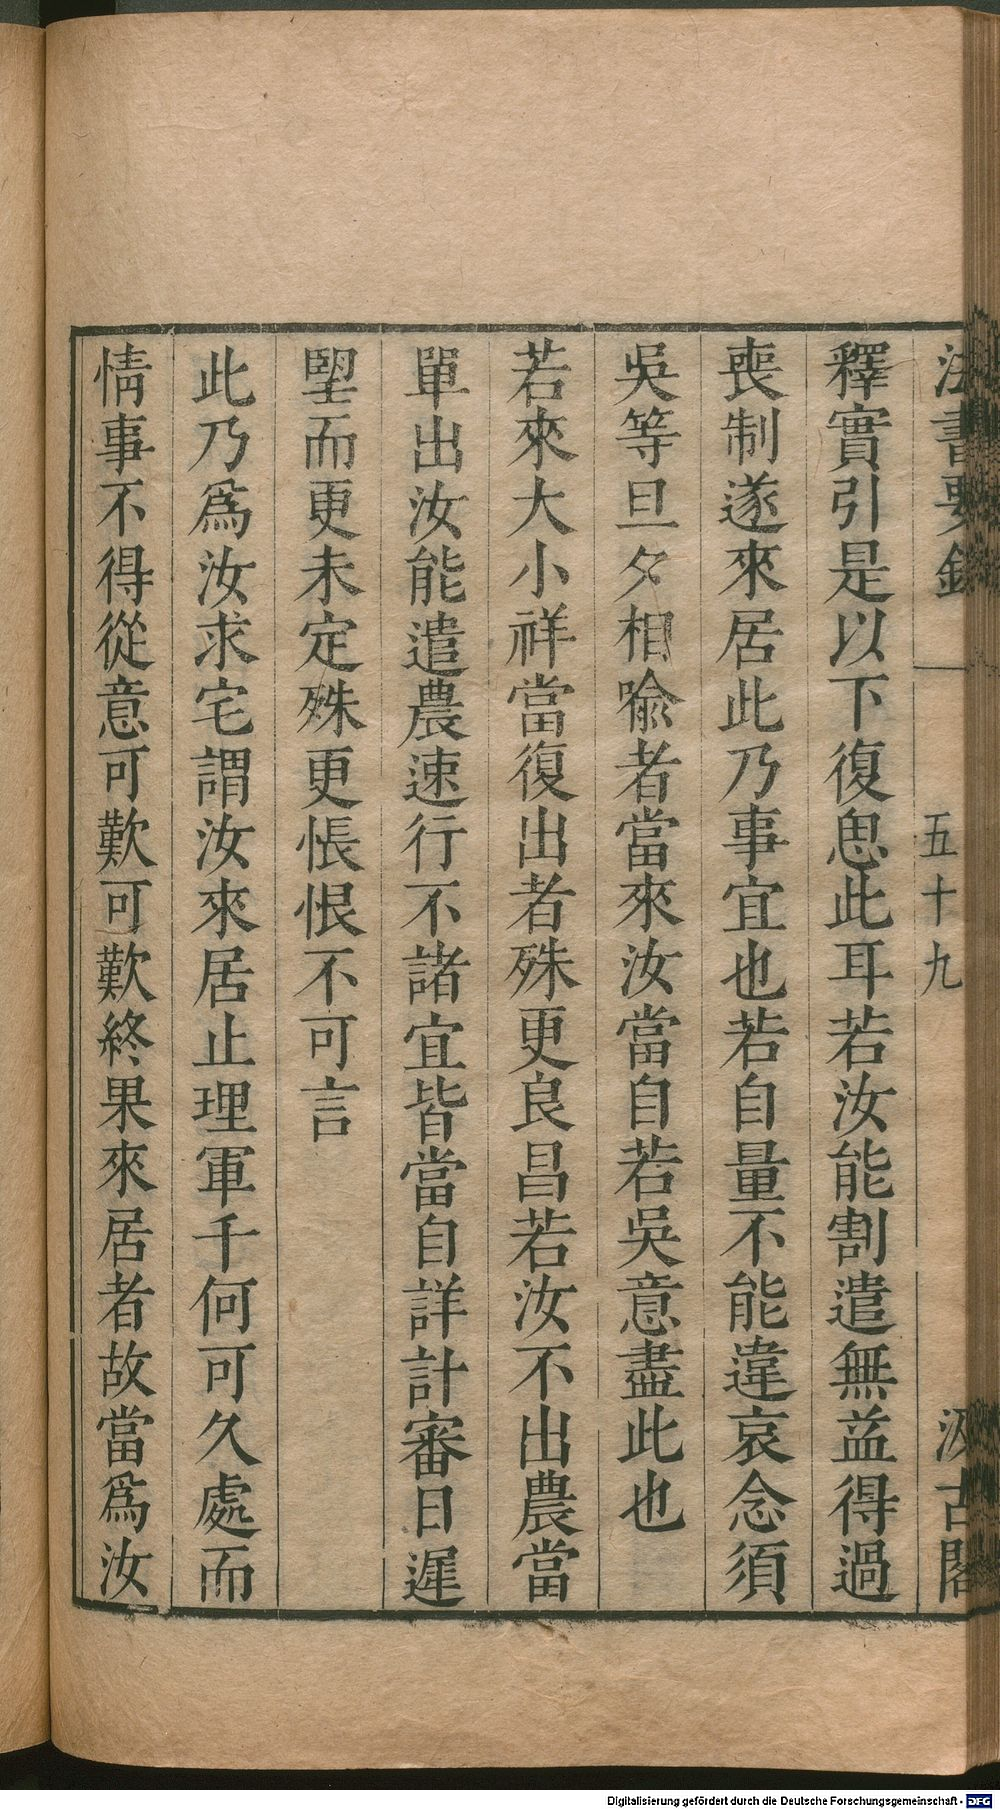 法書要錄 五十九 汲古閣
釋實引是以下復思此耳若汝能割遣無益得過
喪制遂來居此乃事宜也若自量不能違哀念須
吳等旦夕相喻者當來汝當自若吳意盡此也
若來大小祥當復出者殊更良昌若汝不出農當
單出汝能遣農速行不諸宜皆當自詳計審日遲
朢而更未定殊更悵恨不可言
此乃爲汝求宅謂汝來居止理軍千何可久處而
情事不得從意可歎可歎終果來居者故當爲汝
Digitalisierung gefördert durch die Deutsche Forschungsgemeinschaft - DFG